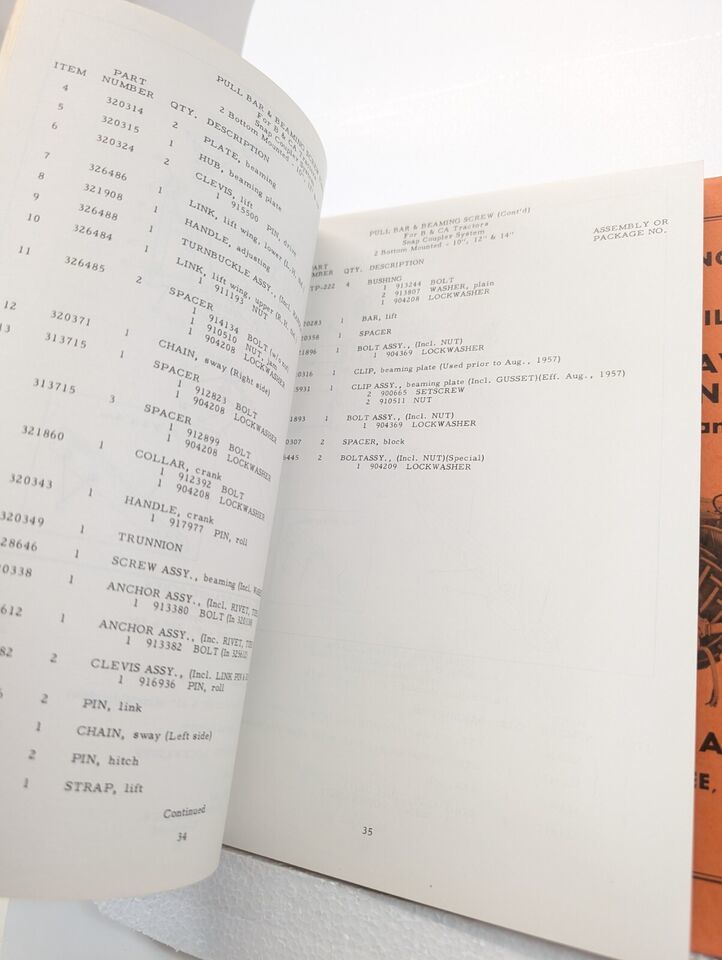 PULL BAR & BEAMING
For B & CA Tractors
Snap Coupler
2 Bottom Mounted - 10",
ITEM PART NUMBER QTY. DESCRIPTION
4 320314 2 PLATE, beaming
5 320315 1 HUB, beaming plate
6 320324 2 CLEVIS, lift
1 915500 PIN, drive
7 326486 1 LINK, lift wing, lower (L.H.
8 321908 1 HANDLE, adjusting
9 326488 1 TURNBUCKLE ASSY., (Incl.
10 326484 1 LINK, lift wing, upper (R.H.
1 911193 NUT
11 326485 2 SPACER
1 914134 BOLT (w/o nut)
1 910510 NUT, jam
1 904208 LOCKWASHER
12 320371 1 CHAIN, sway (Right side)
13 313715 1 SPACER
1 912823 BOLT
1 904208 LOCKWASHER
313715 3 SPACER
1 912899 BOLT
1 904208 LOCKWASHER
321860 1 COLLAR, crank
1 912392 BOLT
1 904208 LOCKWASHER
320343 1 HANDLE, crank
1 917977 PIN, roll
320349 1 TRUNNION
28646 1 SCREW ASSY., beaming (Incl.
20338 1 ANCHOR ASSY., (Incl. RIVET,
1 913380 BOLT (In
612 1 ANCHOR ASSY., (Inc. RIVET,
1 913382 BOLT (In 325612)
82 2 CLEVIS ASSY., (Incl. LINK PIN &
1 916936 PIN, roll
2 PIN, link
1 CHAIN, sway (Left side)
2 PIN, hitch
1 STRAP, lift
Continued
34
PULL BAR & BEAMING SCREW (Cont'd)
For B & CA Tractors
Snap Coupler System
2 Bottom Mounted - 10", 12" & 14"
PART
NUMBER QTY. DESCRIPTION ASSEMBLY OR
PACKAGE NO.
TP-222 4 BUSHING
1 913244 BOLT
2 913807 WASHER, plain
1 904208 LOCKWASHER
20283 1 BAR, lift
20358 1 SPACER
21896 1 BOLT ASSY., (Incl. NUT)
1 904369 LOCKWASHER
20316 1 CLIP, beaming plate (Used prior to Aug., 1957)
15931 1 CLIP ASSY., beaming plate (Incl. GUSSET)(Eff. Aug., 1957)
2 900665 SETSCREW
2 910511 NUT
1893 1 BOLT ASSY., (Incl. NUT)
1 904369 LOCKWASHER
0307 2 SPACER, block
6445 2 BOLTASSY., (Incl. NUT)(Special)
1 904209 LOCKWASHER
35